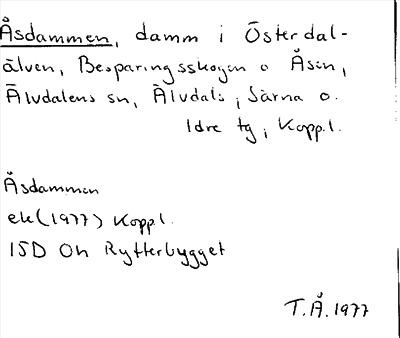 Åsdammen, damm i Österdal-
älven, Besparingsskogen o Åsen,
Älvdalens sn, Älvdals, Särna o.
Idre tg, Kopp.l.
Åsdammen
ek (1977) Kopp.l.
15D Oh Rytterbygget
T.Å. 1977